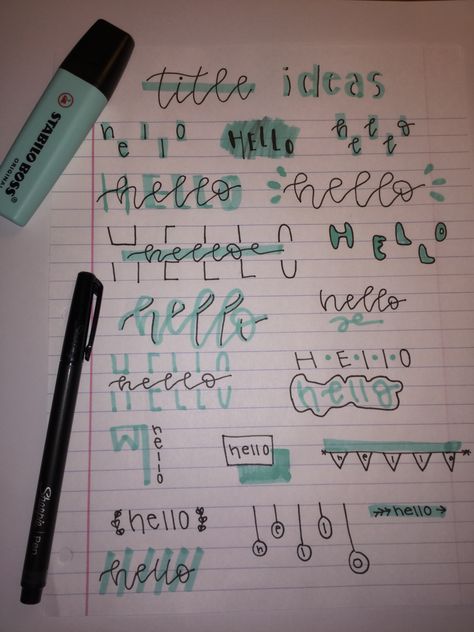 title ideas
STABILO BOSS
ORIGINAL
hello HELLO hello
HELLO hello hello
HELLO hello HELLO
hello hello hello
HELLO hello H·E·l·l·O
hello
hello hello hello
hello hello hello
hello
Sharpie Pen